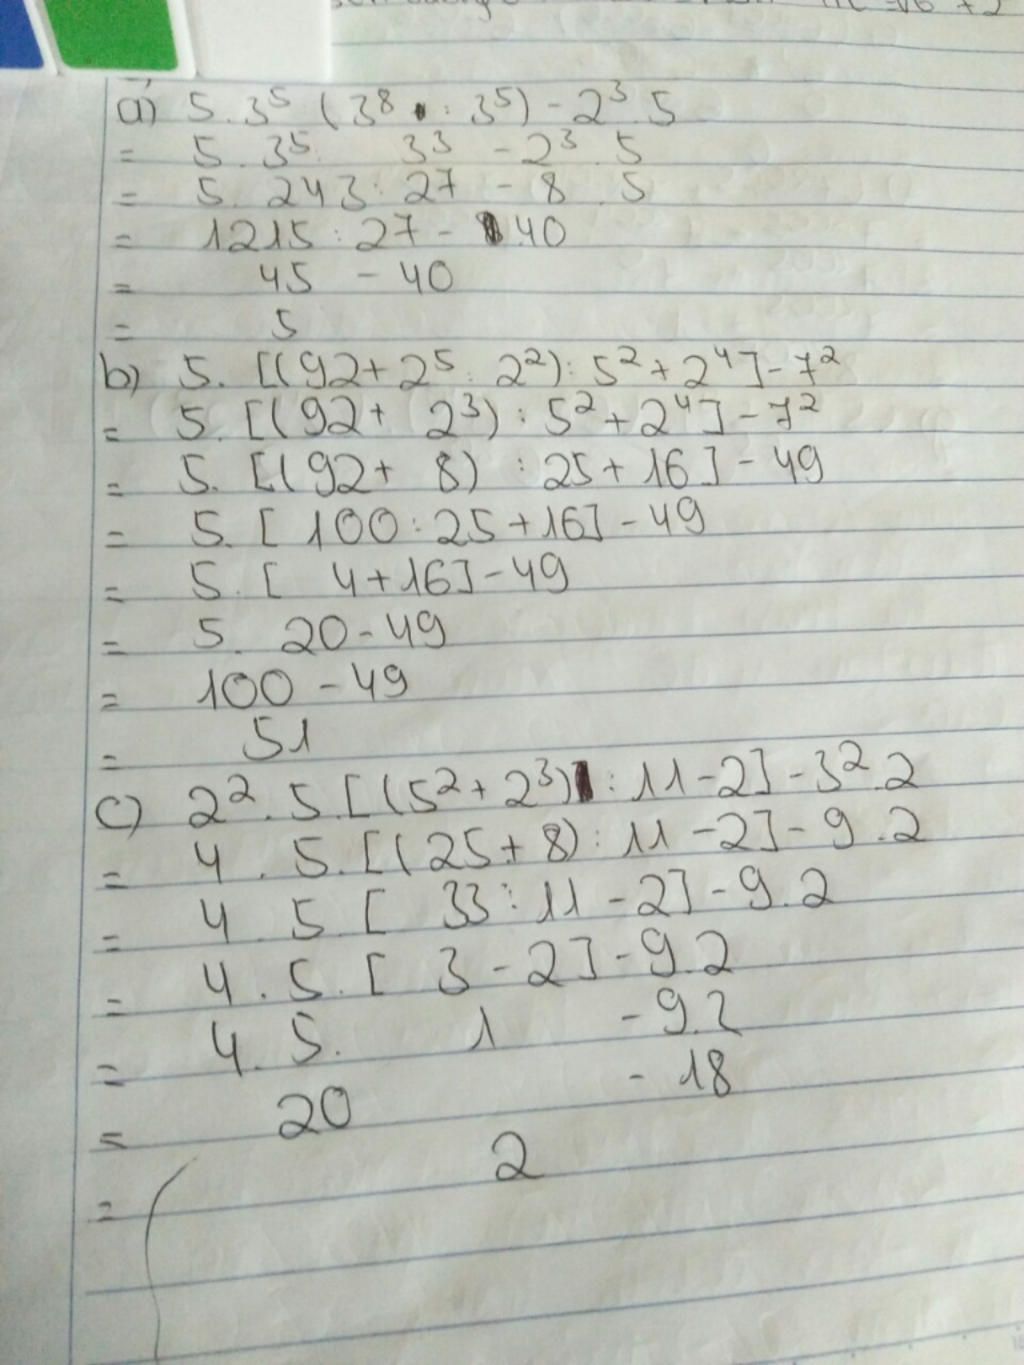 a) 5.3⁵ (3⁸ : 3⁵) - 2³.5
= 5.3⁵: 3³ - 2³.5
= 5.243:27 - 8.5
= 1215:27 - 40
= 45 - 40
= 5
b) 5.[(92+2⁵:2²):5²+2⁴]-7²
= 5.[(92+ 2³):5²+2⁴]-7²
= 5.[(92+ 8) :25+16]-49
= 5.[100:25+16]-49
= 5.[ 4+16]-49
= 5. 20-49
= 100-49
= 51
c) 2².5.[(5²+2³):11-2]-3².2
= 4.5.[(25+8):11-2]-9.2
= 4.5[ 33:11-2]-9.2
= 4.5.[ 3-2]-9.2
= 4.5. 1 -9.2
= 20 - 18
= 2